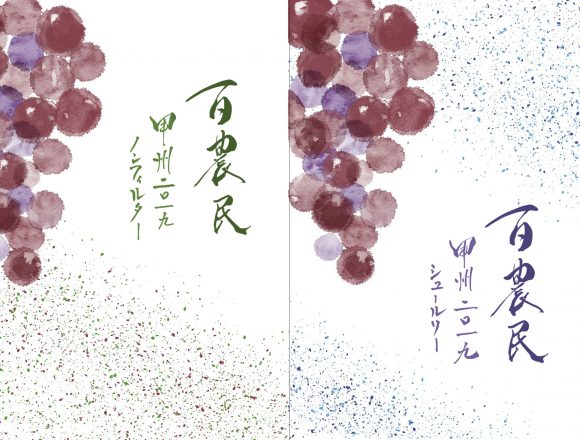 百農民
甲州二〇一九
ノンフィルター
百農民
甲州二〇一九
シュールリー